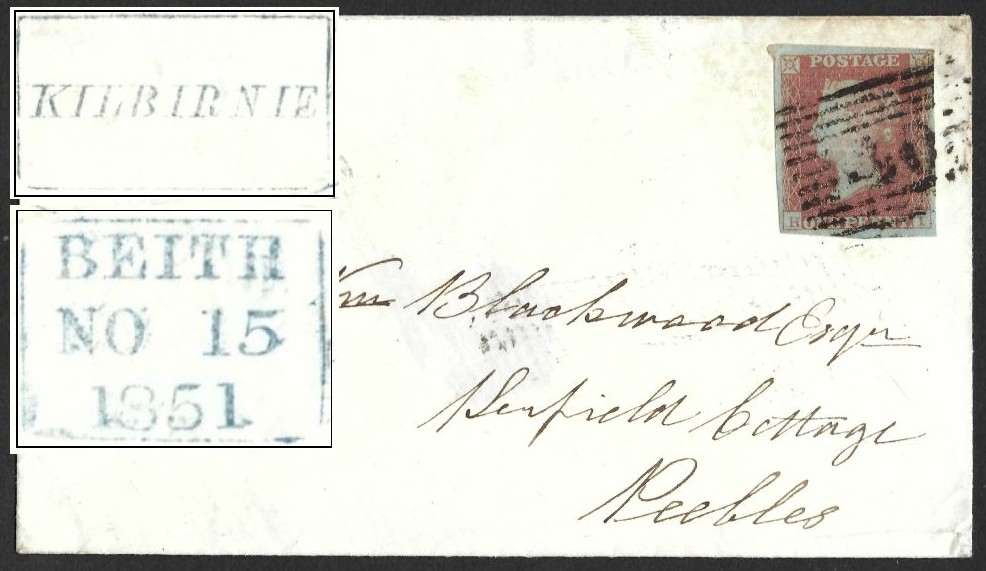 KILBIRNIE
BEITH
NO 15
1851
POSTAGE
ONE PENNY
Wm Blackwood Esqr
Cottage
Peebles